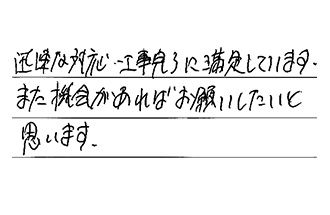 迅速な対応・工事完了に満足しています.
また機会があればお願いしたいと
思います.